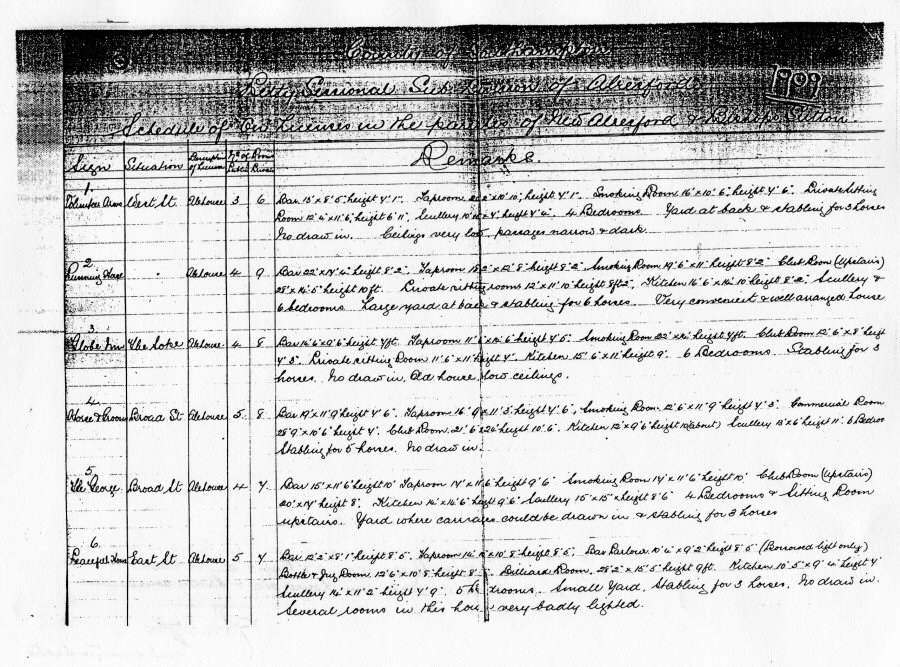 County of Southampton
Petty Sessional Sub Division of Alresford
1909
Schedule of Licenses in the parishes of New Alresford & Bishops Sutton
Sign Situation Description of License No. of Rooms Public Private Remarks.
1
Volunteer Arms West St Alehouse 3 6 Bar 13' x 8'5" height 7'1". Taproom height 7'1". Smoking Room 16' x 10'6", height 7'6". Private Sitting
Room 12'6 x 11'6, height 6'11", Scullery height 7'4". 4 Bedrooms. Yard at back & stabling for 3 horses
No draw in. Ceilings very low passages narrow & dark.
2
Running Horse " Alehouse 4 9 Bar 22' x 14'4" height 8'2". Taproom height 8'2", Smoking Room 19'6" x 11' height 8'2" Club Room (Upstairs)
28' x 14'5" height 10ft. Private sitting rooms 12' x 11'10" height 8ft2". Kitchen 16'6 x 14'10 height 8'2", Scullery &
6 bedrooms. Large yard at back & stabling for 6 horses. Very convenient & well arranged house
3
Globe Inn The Soke Alehouse 4 8 Bar 14'6 x 9'6 height 7ft. Taproom 11'6 height 7'5". Smoking Room height 7ft. Club Room 12'6" x 8' height
7'3". Private sitting Room 11'6" x 11' height 7'. Kitchen 15'6 x 11' height 9'. 6 Bedrooms. Stabling for 3
horses. No draw in. Old house, low ceilings.
4
Horse & Groom Broad St Alehouse 5 8 Bar 19' x 11'9" height 7'6". Taproom 16'9 x 11'3" height 7'6", Smoking Room 12'6 x 11'9" height 7'3". Commercial Room
28'9" x 10'6" height 7'. Club Room 21'6 x 24' height 10'6. Kitchen 12' x 9'6" height 10 (about) Scullery 13' x 6' height 11'. 6 Bedroo
Stabling for 5 horses. No draw in.
5
The George Broad St Alehouse 4 7 Bar 15' x 11'6" height 10' Taproom 17' x 11'6" height 9'6" Smoking Room 17' x 11'6" height 10' Club Room (Upstairs)
20' x 17' height 8'. Kitchen 14' x 14'6" height 9'6" Scullery 15' x 15' x height 8'6" 4 Bedrooms & Sitting Room
upstairs. Yard where carriages could be drawn in & stabling for 3 horses
6
Peaceful Home East St Alehouse 5 7 Bar 12'2" x 8'1" height 8'5. Taproom height 8'5. Bar Parlora 10'4" x 9'2" height 8'5 (Borrowed light only)
Bottle & Jug Room 12'6" x 10'8" height Billiard Room. 28'2" x 15'5" height 9ft. Kitchen 10'5" x 9'4" height 7'
Scullery 14' x 11'2" height 7'9". 5 Bedrooms. Small Yard. Stabling for 3 horses. No draw in.
Several rooms in this house very badly lighted.